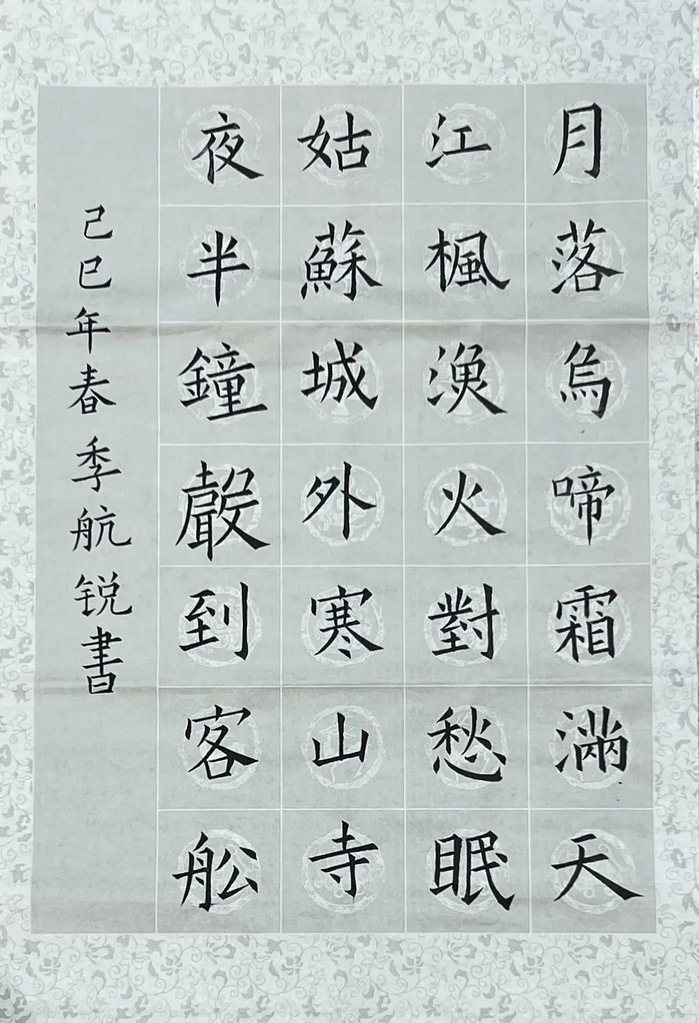 月落烏啼霜滿天
江楓漁火對愁眠
姑蘇城外寒山寺
夜半鐘聲到客舩
己巳年春季航锐書